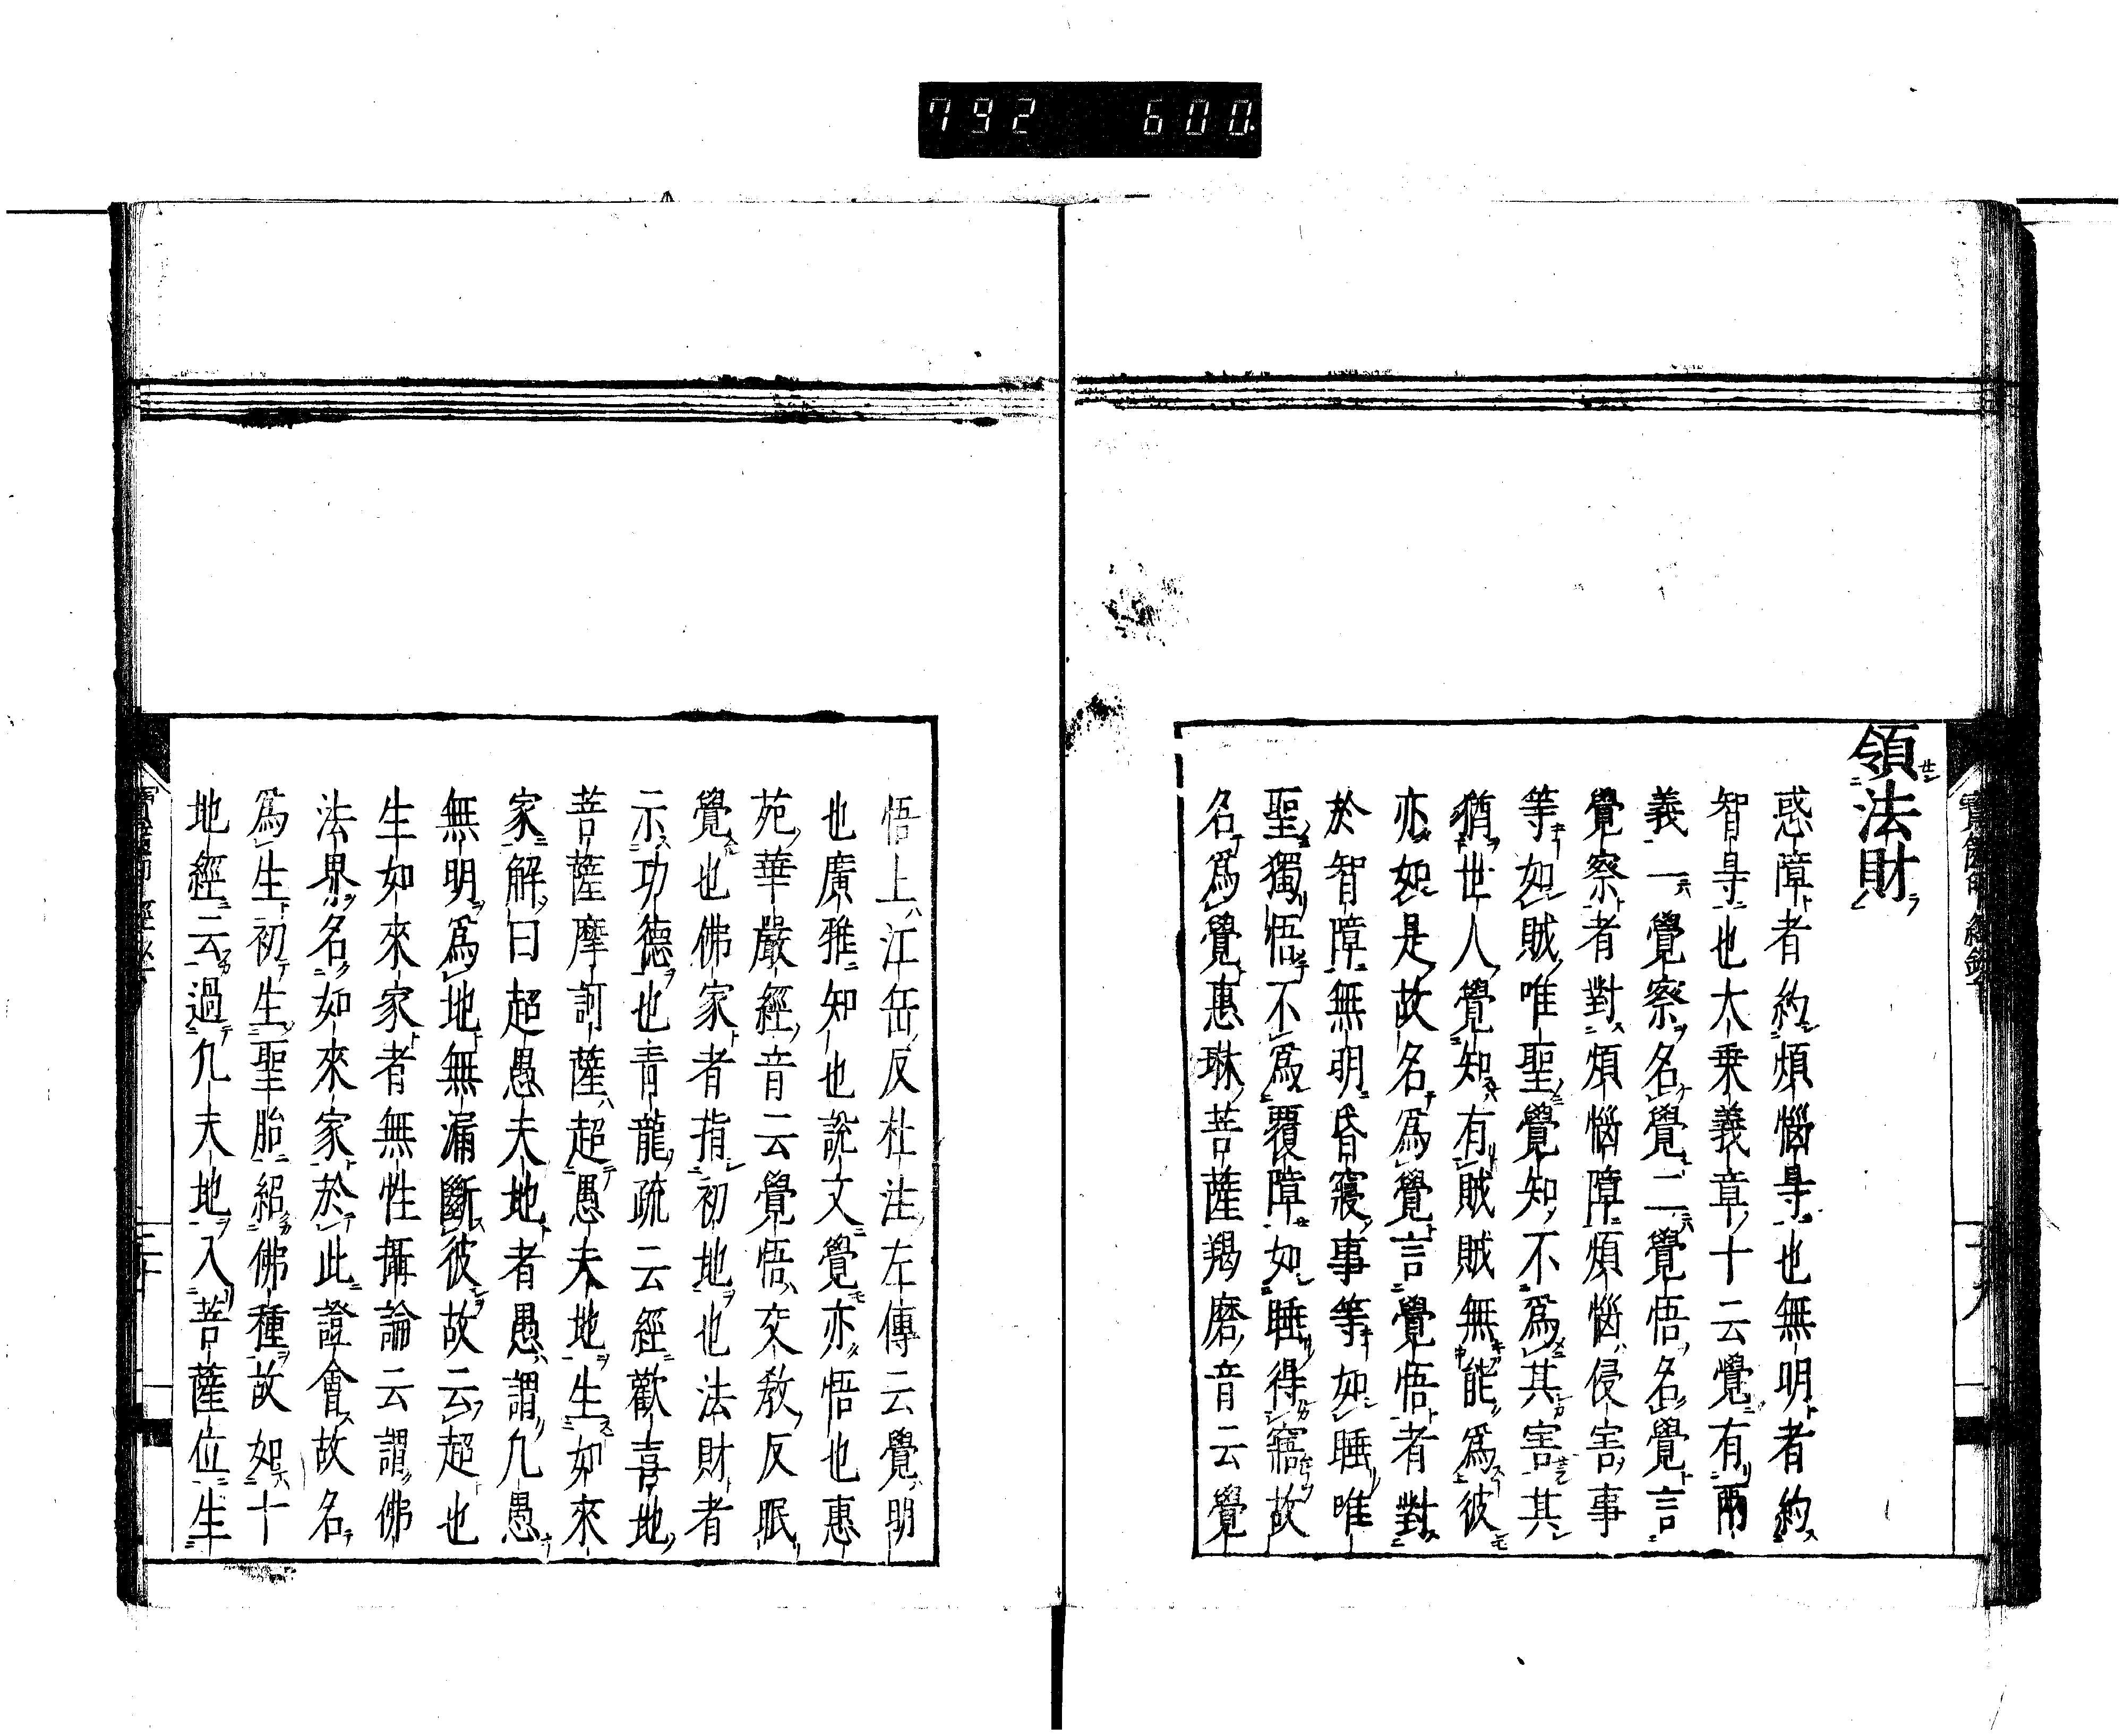 792 600
領法財
惑障者約煩惱㝵也無明者約
智㝵也大乗義章十云覺有兩
義一覺察名覺二覺悟名覺言
覺察者對煩惱障煩惱侵害事
等如賊唯聖覺知不爲其害其
猶世人覺知有賊賊無能爲彼
亦如是故名爲覺言覺悟者對
於智障無明昏寢事等如睡唯
聖獨悟不爲覆障如睡得寤故
名爲覺惠琳菩薩羯磨音云覺
悟上江岳反杜注左傳云覺明
也廣雅知也說文覺亦悟也惠
苑華嚴經音云覺悟交教反眠
覺也佛家者指初地也法財者
示功德也青龍疏云經歡喜地
菩薩摩訶薩超愚夫地生如來
家解曰超愚夫地者愚謂凢愚
無明爲地無漏斷彼故云超也
生如來家者無性攝論云謂佛
法界名如來家於此證會故名
爲生初生聖胎紹佛種故如十
地經云過凢夫地入菩薩位生